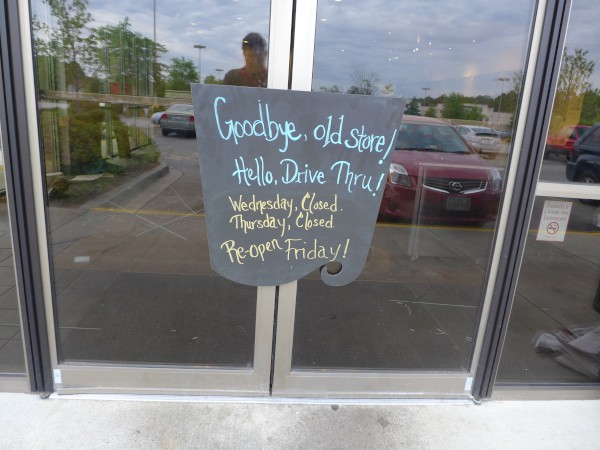 Goodbye, old store!
Hello, Drive Thru!
Wednesday, Closed.
Thursday, Closed.
Re-open Friday!